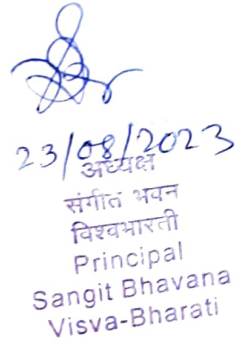 23/08/2023
अध्यक्ष
संगीत भवन
विश्वभारती
Principal
Sangit Bhavana
Visva-Bharati